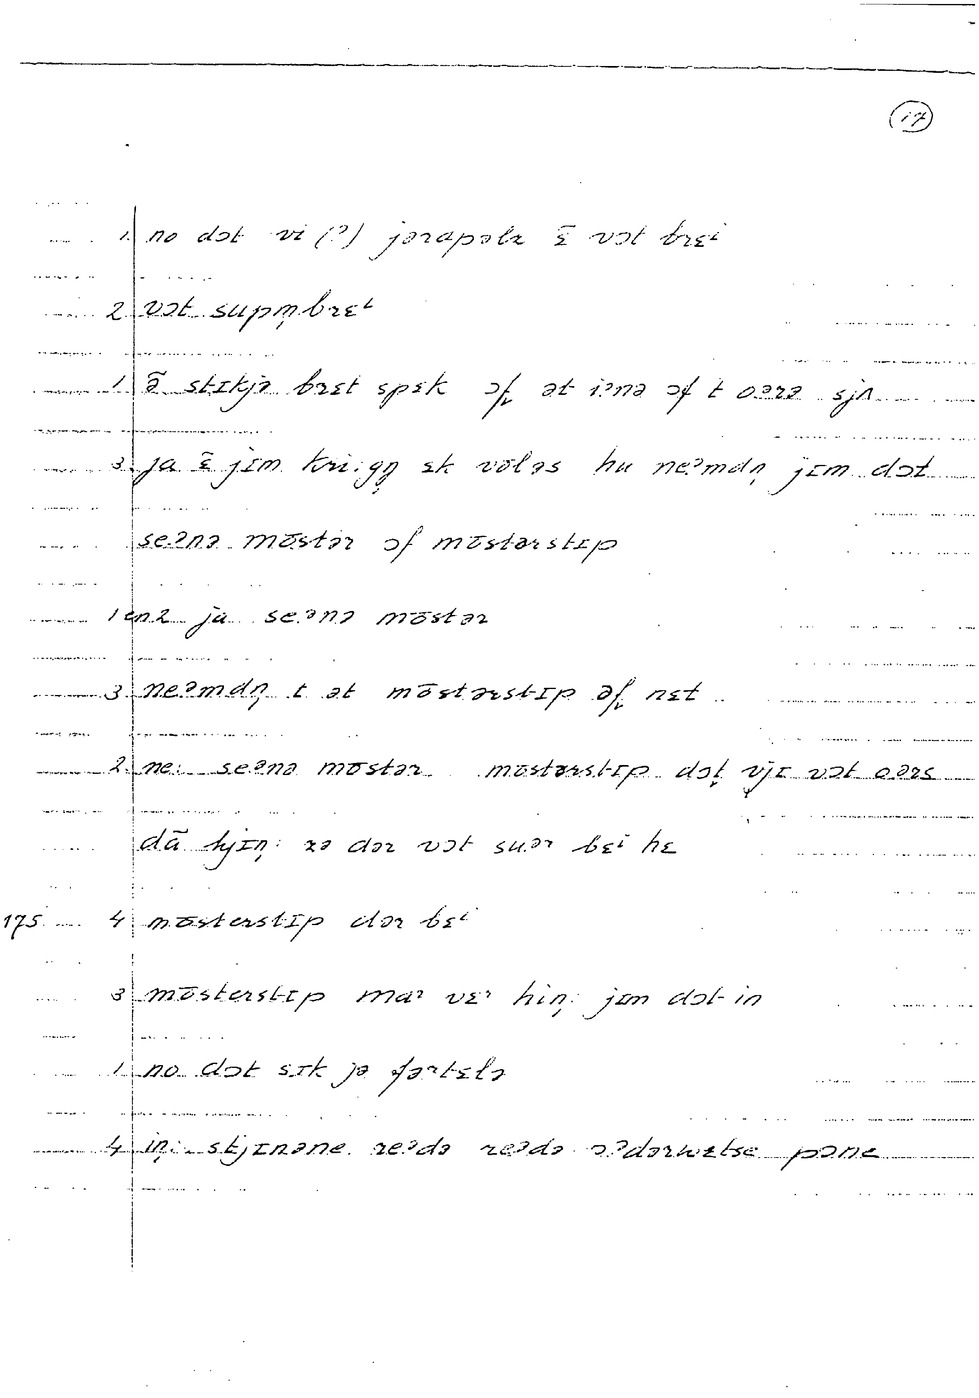 17
1. no dɔt vi (?) jərapəlz ɛ̄ vɔt brɛⁱ
2 vɔt supm̩brɛⁱ
1 ə̄ stɪkjə brɛt spɛk ɔf ət i:nə ɔf t oərə sjɪ
3 ja ɛ̄ jɪm kri:gŋ̩ ɛk vōləs hu neəmdn̩ jɪm dɔt
seənə mōstər ɔf mōstərstɪp
1 en 2 ja seənə mōstər
3 neəmdn̩ t ət mōstərstɪp əf nɛt
2. ne: seənə mōstər mōstərstɪp dɔt vjɪ vɔt oərs
dā hjɪn: zə dər vɔt suər bɛⁱ hɛ
175 4 mōsterstɪp dər bɛⁱ
3 mōsterstɪp mar vɛr hin: jɪm dɔt in
1 no dɔt sɪk jə fərtɛlə
4 in: stjɪnəne reədə reədə ɔədərwɛtse pɔne